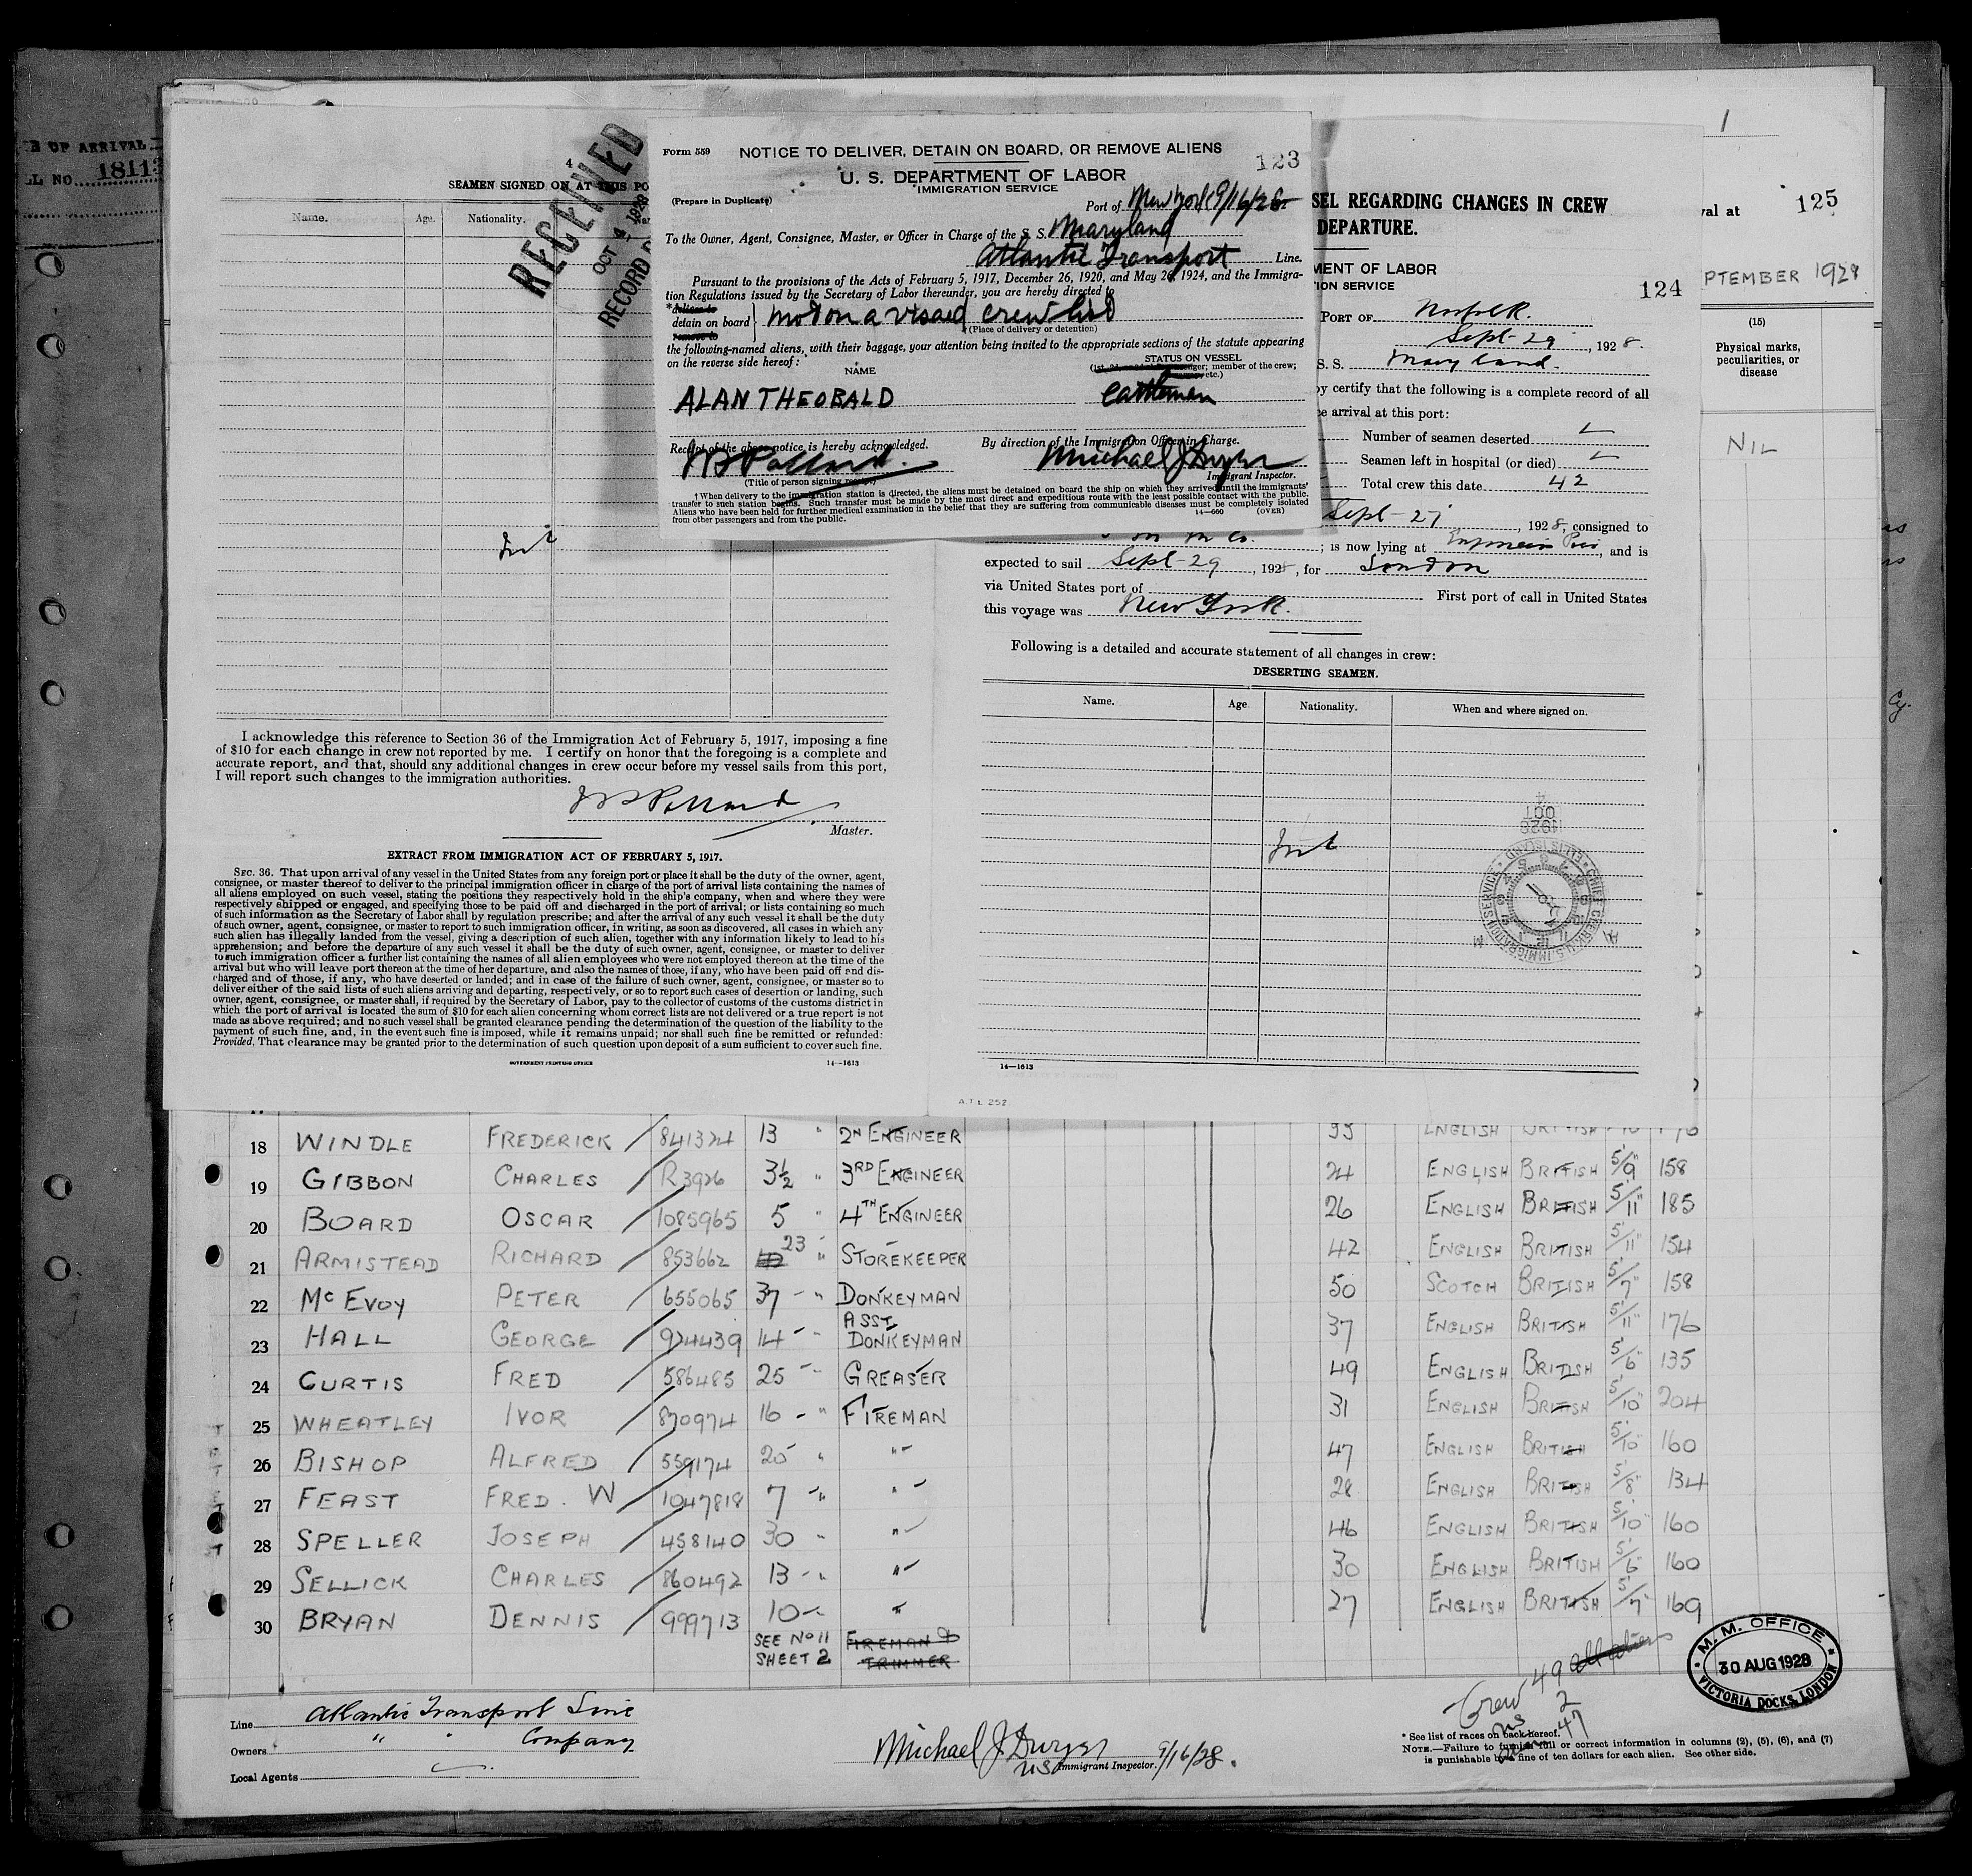 E OF ARRIVAL
LL NO. 18113
4
SEAMEN SIGNED ON AT THIS PO
Name. Age. Nationality.
RECEIVED
OCT 4, 1928
RECORD
Nil
I acknowledge this reference to Section 36 of the Immigration Act of February 5, 1917, imposing a fine
of $10 for each change in crew not reported by me. I certify on honor that the foregoing is a complete and
accurate report, and that, should any additional changes in crew occur before my vessel sails from this port,
I will report such changes to the immigration authorities.
Pollard
Master.
EXTRACT FROM IMMIGRATION ACT OF FEBRUARY 5, 1917.
SEC. 36. That upon arrival of any vessel in the United States from any foreign port or place it shall be the duty of the owner, agent,
consignee, or master thereof to deliver to the principal immigration officer in charge of the port of arrival lists containing the names of
all aliens employed on such vessel, stating the positions they respectively hold in the ship's company, when and where they were
respectively shipped or engaged, and specifying those to be paid off and discharged in the port of arrival; or lists containing so much
of such information as the Secretary of Labor shall by regulation prescribe; and after the arrival of any such vessel it shall be the duty
of such owner, agent, consignee, or master to report to such immigration officer, in writing, as soon as discovered, all cases in which any
such alien has illegally landed from the vessel, giving a description of such alien, together with any information likely to lead to his
apprehension; and before the departure of any such vessel it shall be the duty of such owner, agent, consignee, or master to deliver
to such immigration officer a further list containing the names of all alien employees who were not employed thereon at the time of the
arrival but who will leave port thereon at the time of her departure, and also the names of those, if any, who have been paid off and dis-
charged and of those, if any, who have deserted or landed; and in case of the failure of such owner, agent, consignee, or master so to
deliver either of the said lists of such aliens arriving and departing, respectively, or so to report such cases of desertion or landing, such
owner, agent, consignee, or master shall, if required by the Secretary of Labor, pay to the collector of customs of the customs district in
which the port of arrival is located the sum of $10 for each alien concerning whom correct lists are not delivered or a true report is not
made as above required; and no such vessel shall be granted clearance pending the determination of the question of the liability to the
payment of such fine, and, in the event such fine is imposed, while it remains unpaid; nor shall such fine be remitted or refunded:
Provided, That clearance may be granted prior to the determination of such question upon deposit of a sum sufficient to cover such fine.
GOVERNMENT PRINTING OFFICE 14—1613
Form 559 NOTICE TO DELIVER, DETAIN ON BOARD, OR REMOVE ALIENS 123
U. S. DEPARTMENT OF LABOR
IMMIGRATION SERVICE
(Prepare in Duplicate) Port of New York 9/16/28
To the Owner, Agent, Consignee, Master, or Officer in Charge of the S. S. Maryland
Atlantic Transport Line.
Pursuant to the provisions of the Acts of February 5, 1917, December 26, 1920, and May 26, 1924, and the Immigra-
tion Regulations issued by the Secretary of Labor thereunder, you are hereby directed to
*deliver to
detain on board not on a visaed crew list
remove to (Place of delivery or detention)
the following-named aliens, with their baggage, your attention being invited to the appropriate sections of the statute appearing
on the reverse side hereof:
NAME STATUS ON VESSEL
member of the crew;
etc.)
ALAN THEOBALD Cattleman
Receipt of the above notice is hereby acknowledged. By direction of the Immigration Officer in Charge.
Pollard. Michael J Dwyer
(Title of person signing receipt) Immigrant Inspector.
† When delivery to the immigration station is directed, the aliens must be detained on board the ship on which they arrived until the immigrants'
transfer to such station begins. Such transfer must be made by the most direct and expeditious route with the least possible contact with the public.
Aliens who have been held for further medical examination in the belief that they are suffering from communicable diseases must be completely isolated
from other passengers and from the public. 14—660 (OVER)
SEL REGARDING CHANGES IN CREW
DEPARTURE.
MENT OF LABOR
ION SERVICE 124
PORT OF Norfolk.
Sept-29, 1928.
S. S. Maryland.
by certify that the following is a complete record of all
ce arrival at this port:
Number of seamen deserted
Seamen left in hospital (or died)
Total crew this date 42
Sept-27, 1928, consigned to
; is now lying at Pier, and is
expected to sail Sept-29, 1928, for London
via United States port of First port of call in United States
this voyage was New York.
Following is a detailed and accurate statement of all changes in crew:
DESERTING SEAMEN.
Name. Age Nationality. When and where signed on.
Nil
OCT 4
1928
CHIEF CLERK U.S. IMMIGRATION SERVICE ELLIS ISLAND
AM
14—1613
A.T.L. 252
1
val at 125
PTEMBER 1928
(15)
Physical marks,
peculiarities, or
disease
NIL
18 WINDLE FREDERICK 841324 13 " 2ND ENGINEER 33 ENGLISH BRITISH
19 GIBBON CHARLES R3926 3½ " 3RD ENGINEER 24 ENGLISH BRITISH 5/9" 158
20 BOARD OSCAR 1085965 5 " 4TH ENGINEER 26 ENGLISH BRITISH 5/11" 185
21 ARMISTEAD RICHARD 853662 23 " STOREKEEPER 42 ENGLISH BRITISH 5/11" 154
22 McEVOY PETER 655065 37 " DONKEYMAN 50 SCOTCH BRITISH 5/7" 158
23 HALL GEORGE 924439 14 " ASST DONKEYMAN 37 ENGLISH BRITISH 5/11" 176
24 CURTIS FRED 586485 25 " GREASER 49 ENGLISH BRITISH 5/6" 135
25 WHEATLEY IVOR 870974 16 " FIREMAN 31 ENGLISH BRITISH 5/10" 204
26 BISHOP ALFRED 559174 25 " " 47 ENGLISH BRITISH 5/10" 160
27 FEAST FRED. W 1047818 7 " " 28 ENGLISH BRITISH 5/8" 134
28 SPELLER JOSEPH 458140 30 " " 46 ENGLISH BRITISH 5/10" 160
29 SELLICK CHARLES 860492 13 " " 30 ENGLISH BRITISH 5/6" 160
30 BRYAN DENNIS 999713 10 " 27 ENGLISH BRITISH 5/7" 169
SEE No 11 FIREMAN &
SHEET 2 TRIMMER
M. M. OFFICE
30 AUG 1928
VICTORIA DOCKS, LONDON
Crew 49
2
47
Line Atlantic Transport Line
Owners " " Company
Local Agents
Michael J Dwyer 9/16/28.
US Immigrant Inspector.
* See list of races on back hereof.
NOTE.—Failure to furnish full or correct information in columns (2), (5), (6), and (7)
is punishable by a fine of ten dollars for each alien. See other side.